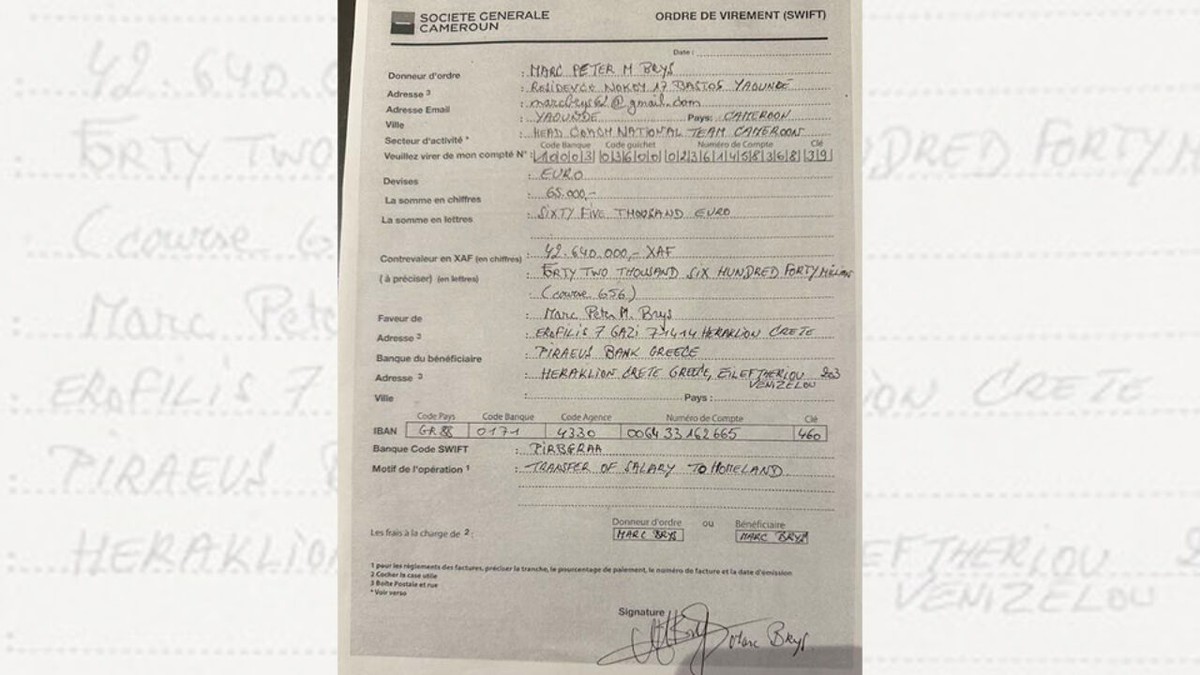 SOCIETE GENERALE
CAMEROUN
ORDRE DE VIREMENT (SWIFT)
Date :
Donneur d'ordre : MARC PETER M BRYS
Adresse 3 : RESIDENCE NOKEY 17 BASTOS YAOUNDE
Adresse Email : marcbrys62@gmail.com
Ville : YAOUNDE Pays: CAMEROON
Secteur d'activité * : HEAD COACH NATIONAL TEAM CAMEROON
Code Banque Code guichet Numéro de Compte Clé
Veuillez virer de mon compté N° : 10003 03600 02361458368 39
Devises : EURO
La somme en chiffres : 65.000,-
La somme en lettres : SIXTY FIVE THOUSAND EURO
Contrevaleur en XAF (en chiffres) : 42.640.000,- XAF
( à préciser) (en lettres) : FORTY TWO THOUSAND SIX HUNDRED FORTY MILLION
: (course 656)
Faveur de : Marc Peter M. Brys
Adresse 3 : EROFILIS 7 GAZI 71414 HERAKLION CRETE
Banque du bénéficiaire : PIRAEUS BANK GREECE
Adresse 3 : HERAKLION CRETE GREECE, EILEFTHERIOU 203
VENIZELOU
Ville : Pays :
Code Pays Code Banque Code Agence Numéro de Compte Clé
IBAN GR 0171 4330 0064 33162665 460
Banque Code SWIFT : PIRBGRAA
Motif de l'opération 1 : TRANSFER OF SALARY TO HOMELAND
Donneur d'ordre ou Bénéficiaire
Les frais à la charge de 2 : MARC BRYS MARC BRYS
1 pour les règlements des factures, préciser la tranche, le pourcentage de paiement, le numéro de facture et la date d'émission
2 Cocher la case utile
3 Boite Postale et rue
* Voir verso
Signature
Marc BRYS